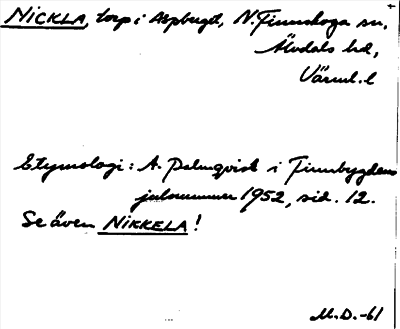 NICKLA, torp i Aspbergd, N. Finnskoga sn,
Älvdals hd,
Värml. l
Etymologi: A. Palmqvist i Finnbygdens
julnummer 1952, sid. 12.
Se även NIKKELA!
M.D.-61